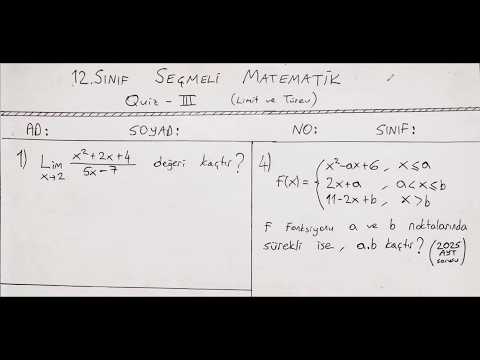 12. SINIF SEÇMELİ MATEMATİK
Quiz - III (Limit ve Türev)
AD: SOYAD: NO: SINIF:
1) Lim x→2 x²+2x+4 / 5x-7 değeri kaçtır?
4) f(x) = { x²-ax+6 , x≤a
2x+a , a<x≤b
11-2x+b , x>b
F fonksiyonu a ve b noktalarında
sürekli ise, a.b kaçtır? (2025 AYT sorusu)